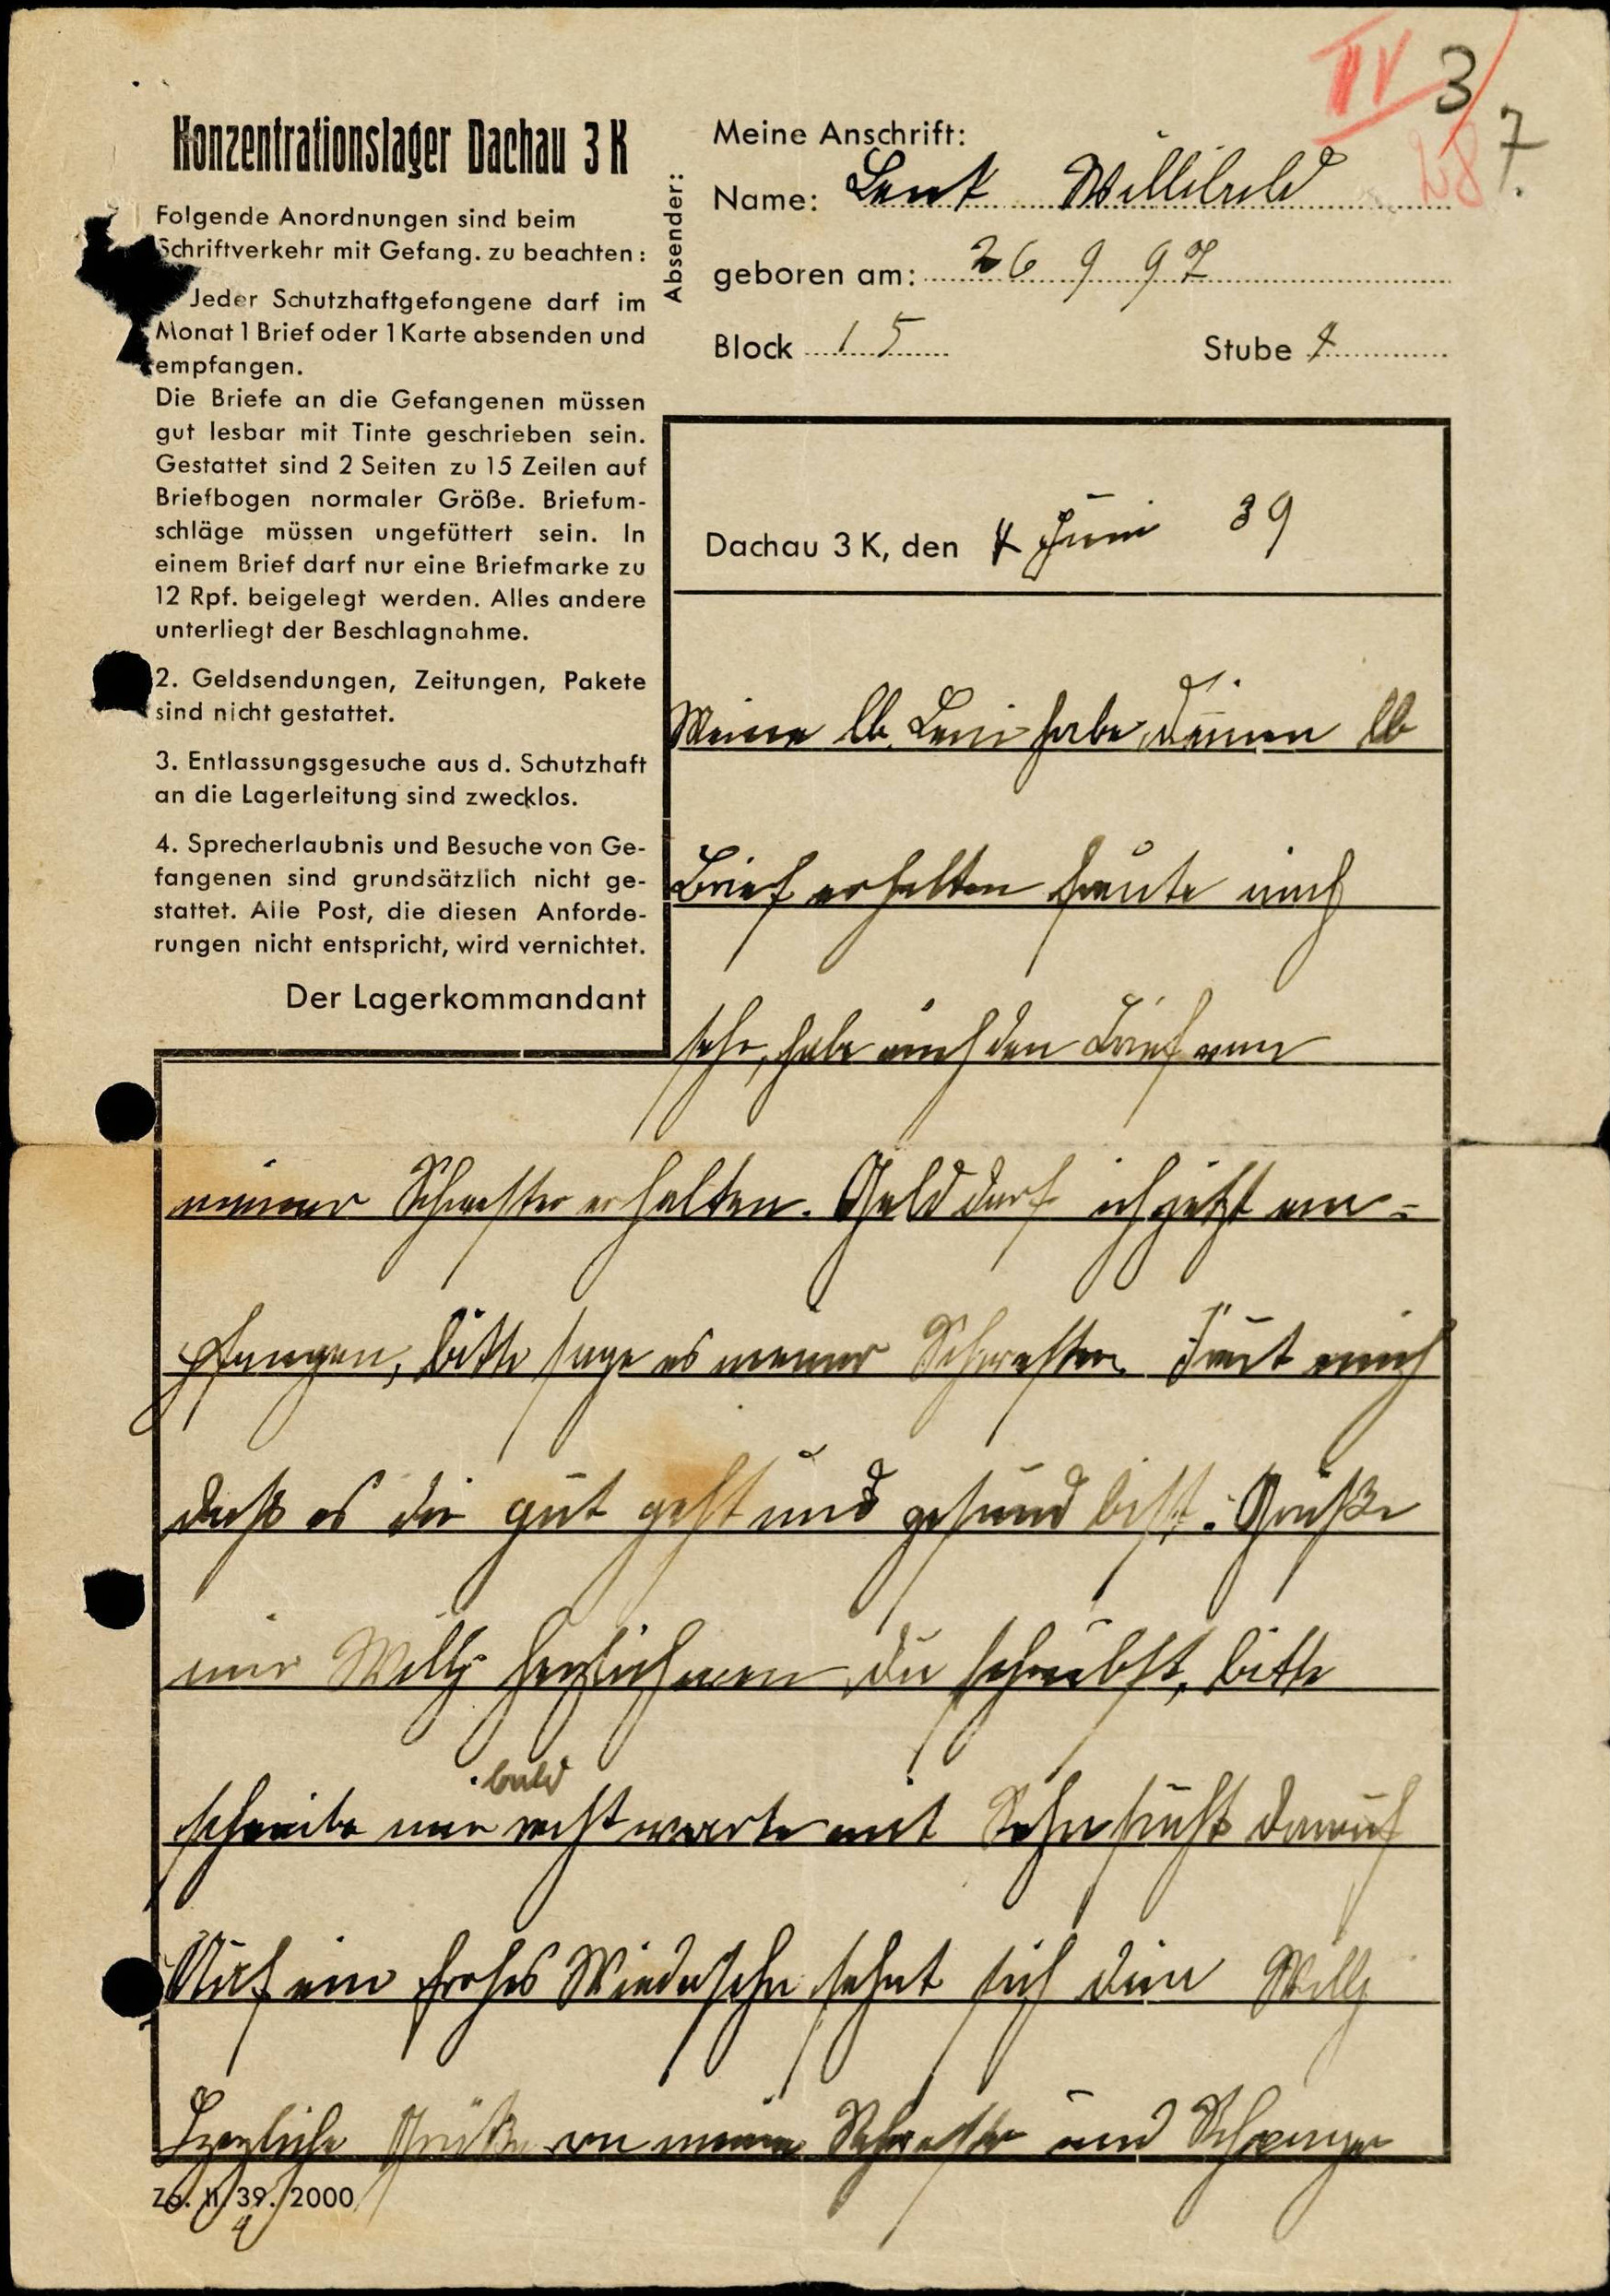 IV 3
28 7.
Konzentrationslager Dachau 3 K
Folgende Anordnungen sind beim
Schriftverkehr mit Gefang. zu beachten:
Jeder Schutzhaftgefangene darf im
Monat 1 Brief oder 1 Karte absenden und
empfangen.
Die Briefe an die Gefangenen müssen
gut lesbar mit Tinte geschrieben sein.
Gestattet sind 2 Seiten zu 15 Zeilen auf
Briefbogen normaler Größe. Briefum-
schläge müssen ungefüttert sein. In
einem Brief darf nur eine Briefmarke zu
12 Rpf. beigelegt werden. Alles andere
unterliegt der Beschlagnahme.
2. Geldsendungen, Zeitungen, Pakete
sind nicht gestattet.
3. Entlassungsgesuche aus d. Schutzhaft
an die Lagerleitung sind zwecklos.
4. Sprecherlaubnis und Besuche von Ge-
fangenen sind grundsätzlich nicht ge-
stattet. Alle Post, die diesen Anforde-
rungen nicht entspricht, wird vernichtet.
Der Lagerkommandant
Absender:
Meine Anschrift:
Name: Lenk Willibald
geboren am: 26 9 97
Block 15 Stube 4
Dachau 3 K, den 4 Juni 39
Meine lb. Leni habe deinen lb
Brief erhalten freute mich
sehr, habe auch den Brief von
meiner Schwester erhalten. Geld darf ich jetzt em-
pfangen, bitte sage es meiner Schwester. Freut mich
daß es dir gut geht und gesund bist. Grüße
mir Willy herzlich wenn du schreibst, bitte
schreibe mir recht bald warte mit Sehnsucht darauf
Auf ein frohes Wiedersehn sehnt sich dein Willy
Herzliche Grüße an meine Schwester und Schwager
39. 2000